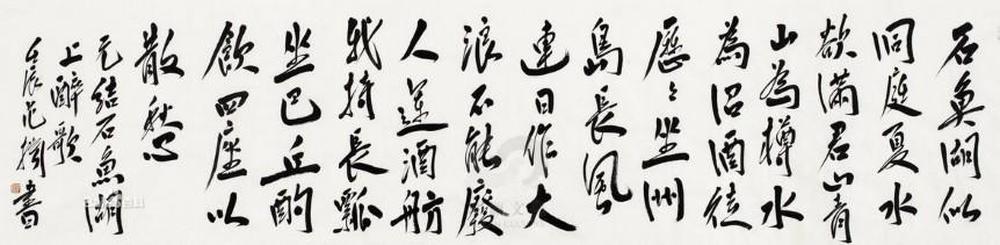 石魚湖似
洞庭夏水
欲滿君山青
山為樽水
為沼酒徒
歷〻坐洲
島長風
連日作大
浪不能廢
人運酒舫
我持長瓢
坐巴丘酌
飲四座以
散愁
元結石魚湖
上醉歌
壬辰范書